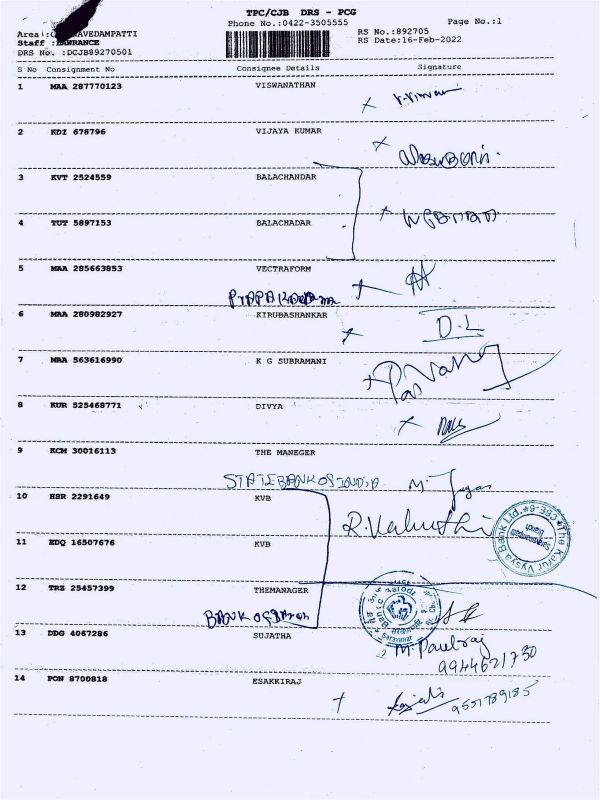 TPC/CJB DRS - PCG
Phone No.:0422-3505555
Page No.:1
Area : AVEDAMPATTI
RS No.:892705
Staff : LAWRANCE
RS Date:16-Feb-2022
DRS No. :DCJB89270501
S No Consignment No Consignee Details Signature
1 MAA 287770123 VISWANATHAN
2 KDI 678796 VIJAYA KUMAR
3 KVT 2524559 BALACHANDAR
4 TUT 5897153 BALACHADAR
5 MAA 285663853 VECTRAFORM
6 MAA 280982927 KIRUBASHANKAR
D.L
7 MAA 563616990 K G SUBRAMANI
8 KUR 525468771 DIVYA
9 KCM 30016113 THE MANEGER
STATE BANK OF INDIA
10 HSR 2291649 KVB
R.Valuthi
11 EDQ 16507676 KVB
The Karur Vysya Bank Ltd.
12 TRZ 25457399 THEMANAGER
BANK OF
13 DDG 4067286 SUJATHA
M.Paulraj
9944621730
14 PON 8700818 ESAKKIRAJ